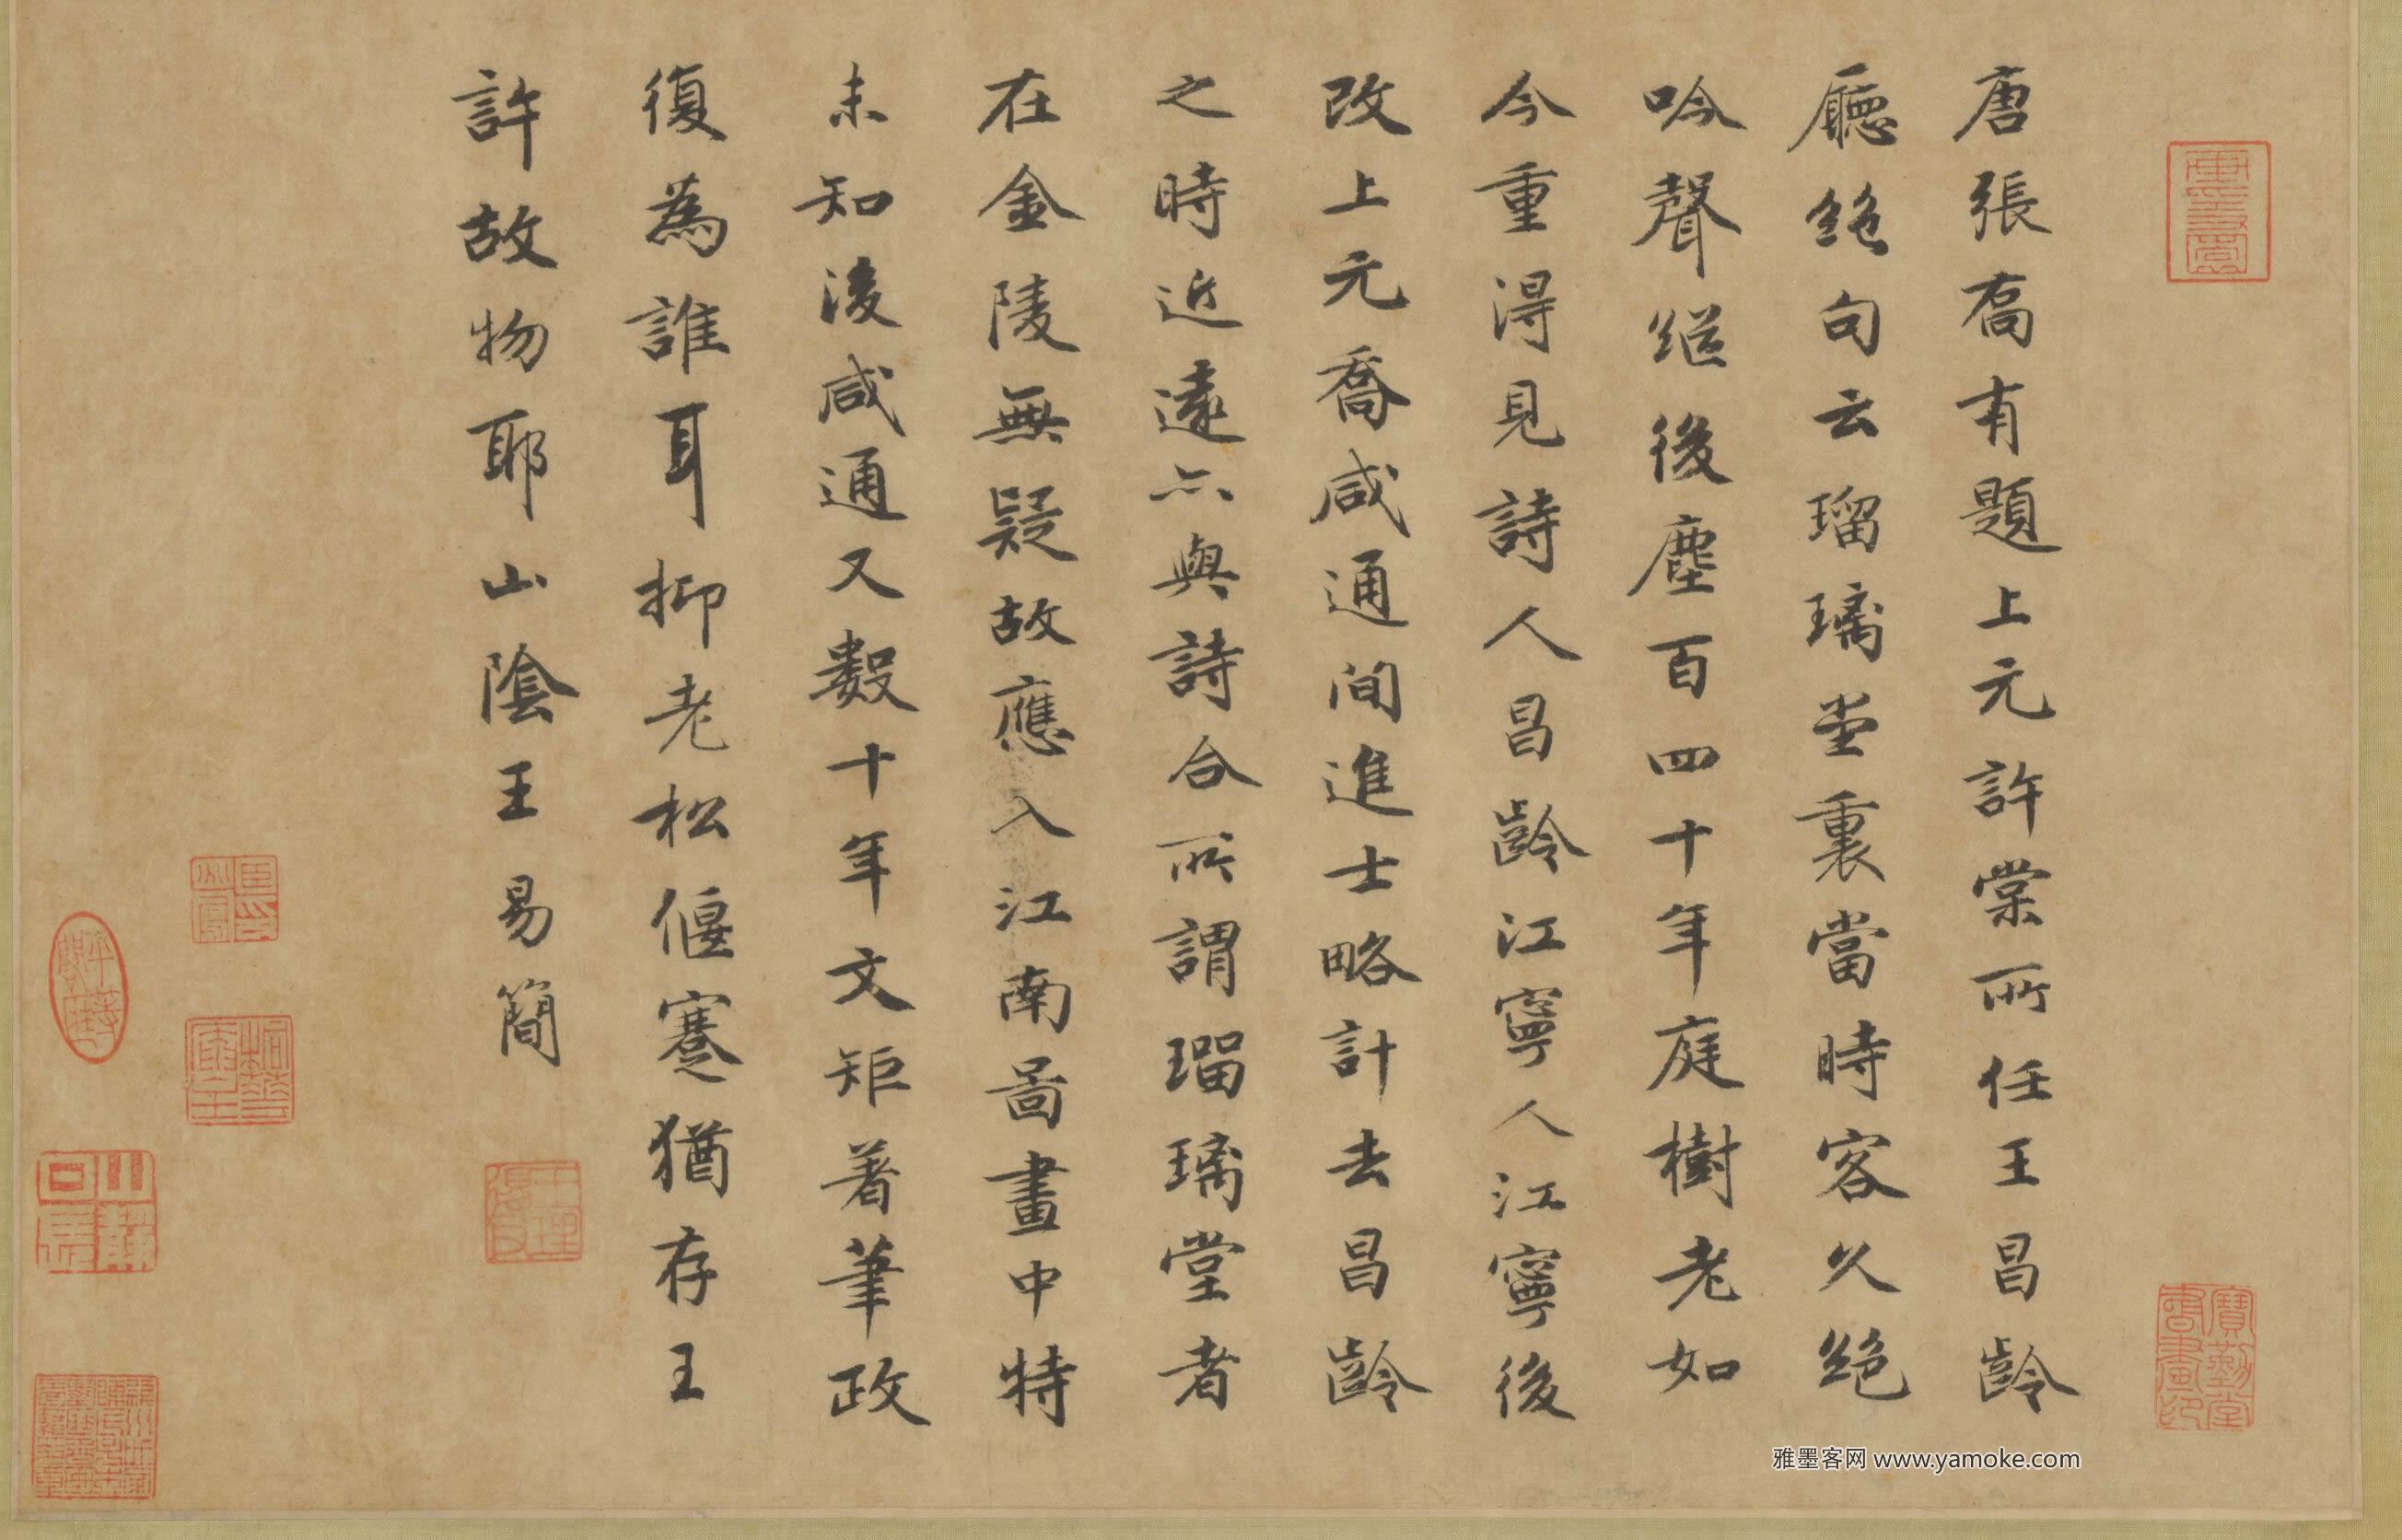 唐張喬有題上元許棠所任王昌齡
廳絶句云瑠璃堂裏當時客久絶
吟聲继後塵百四十年庭樹老如
今重得見詩人昌齡江寧人江寧後
改上元喬咸通间進士略計去昌齡
之時近遠亦與詩合所謂瑠璃堂者
在金陵無疑故應入江南啚畫中特
未知後咸通又數十年文矩著筆政
復為誰耳抑老松偃蹇猶存王
許故物耶山陰王易簡
寶勤堂書畫印
雅墨客网 www.yamoke.com